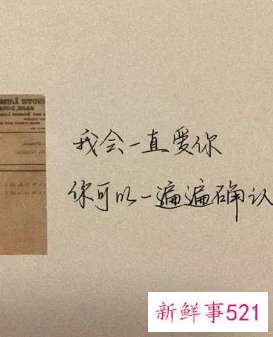 我会一直爱你
你可以一遍遍确认
新鲜事521